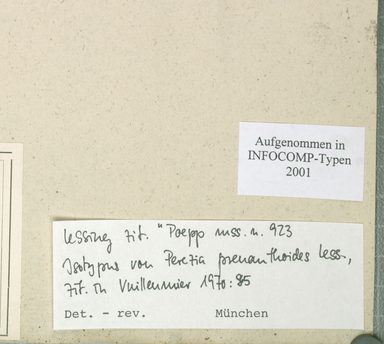 Aufgenommen in
INFOCOMP-Typen
2001
Lessing zit. "Poepp mss. n. 923
Isotypus von Perezia prenanthoides Less.,
zit. in Vuilleumier 1970: 85
Det. - rev. München